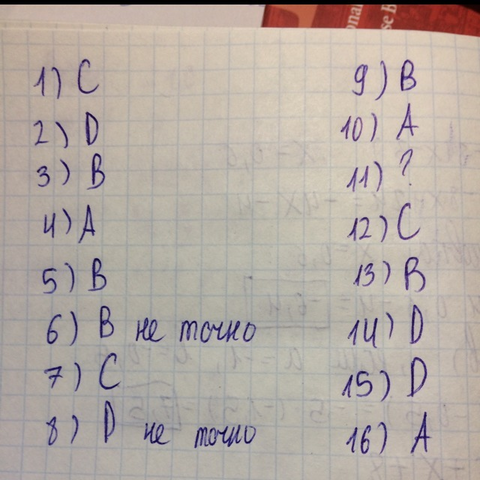 1) C
2) D
3) B
4) A
5) B
6) B не точно
7) C
8) D не точно
9) B
10) A
11) ?
12) C
13) B
14) D
15) D
16) A